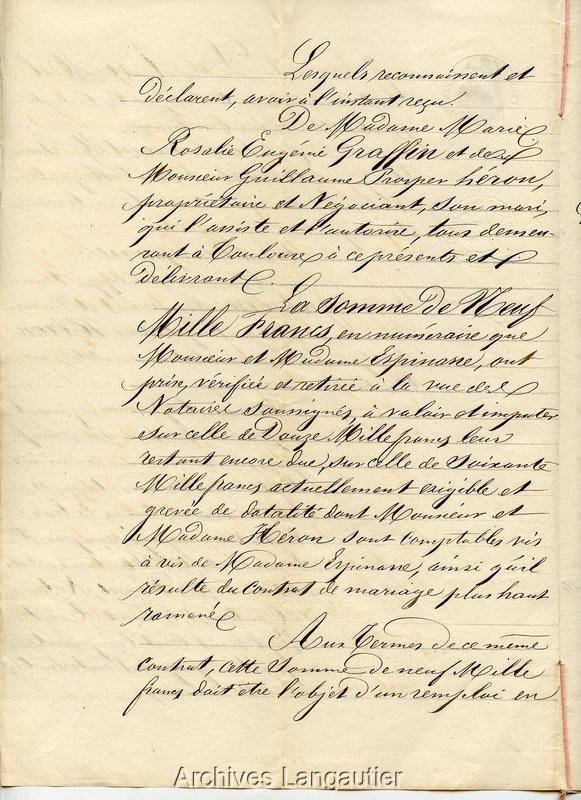 Lesquels reconnaissent et
déclarent, avoir à l'instant reçu.
De Madame Marie
Rosalie Eugénie Graffin et de
Monsieur Guillaume Prosper Héron,
propriétaire et Négociant, son mari,
qui l'assiste et l'autorise, tous demeu-
rant à Toulouse à ce présents et
délivrant.
La Somme de Neuf
Mille Francs, en numéraire que
Monsieur et Madame Espinasse, ont
prise, vérifiée et retirée à la vue des
Notaires soussignés, à valoir et imputer
sur celle de Douze Mille francs leur
restant encore due, sur celle de Soixante
Mille francs actuellement exigible et
grevée de dotalité dont Monsieur et
Madame Héron sont comptables vis
à vis de Madame Espinasse, ainsi qu'il
résulte du contrat de mariage plus haut
ramené
Aux Termes de ce même
contrat, cette Somme de neuf Mille
francs doit être l'objet d'un remploi en
Archives Langautier